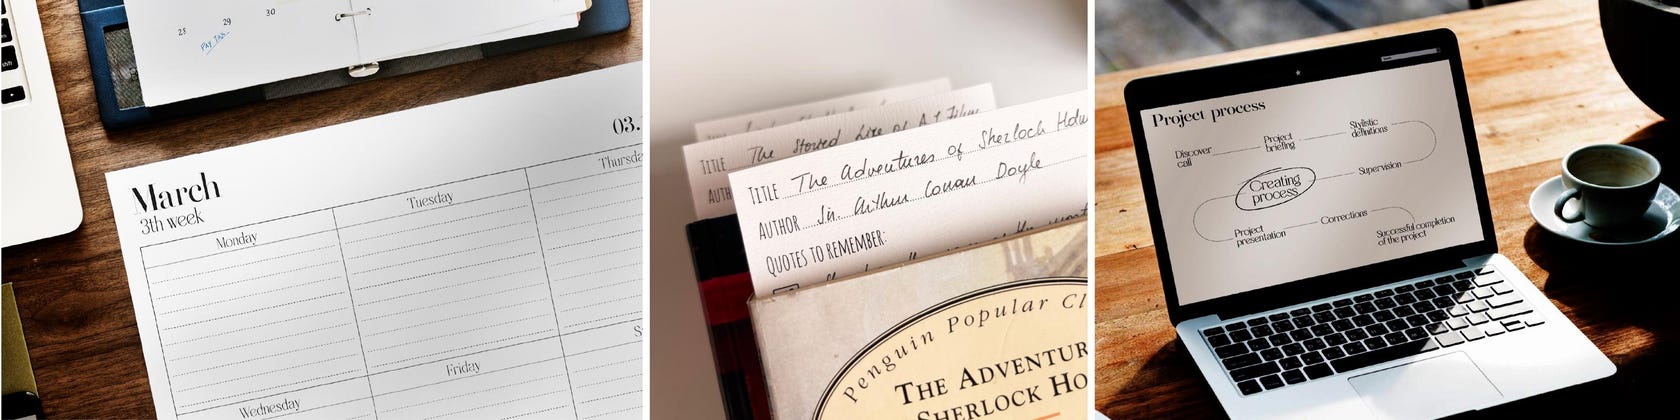 28
29
30
Pay Tax
03.
March
3th week
Monday
Tuesday
Thursda
Wednesday
Friday
S
shift
TITLE The Storied Life of A.J. Fikry
TITLE The Adventures of Sherlock Holm
AUTHOR Sir Arthur Conan Doyle
QUOTES TO REMEMBER:
Penguin Popular Cl
THE ADVENTUR
SHERLOCK HO
Project process
Discover
call
Project
briefing
Stylistic
definitions
Supervision
Creating
process
Project
presentation
Corrections
Successful completion
of the project